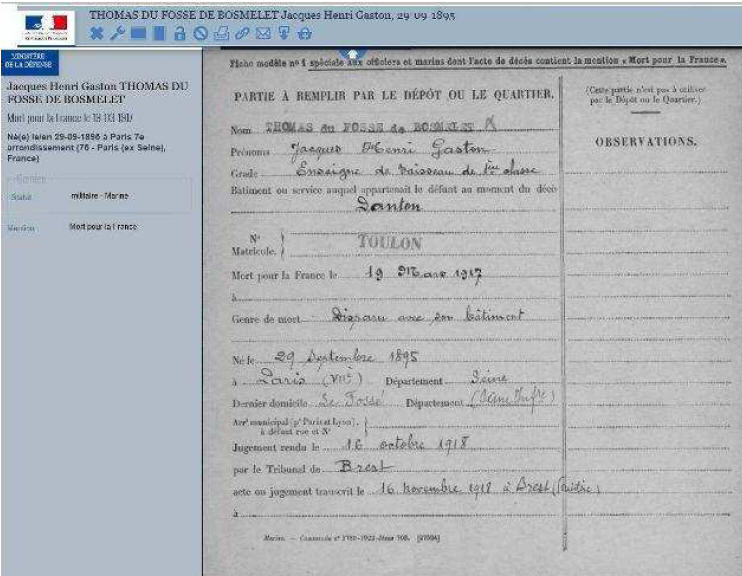 THOMAS DU FOSSE DE BOSMELET Jacques Henri Gaston, 29 09 1895
MINISTÈRE
DE LA DÉFENSE
Jacques Henri Gaston THOMAS DU
FOSSE DE BOSMELET
Mort pour la France le 19 03 1917
Né(e) le/en 29-09-1895 à Paris 7e
arrondissement (75 - Paris (ex Seine),
France)
Statut militaire - Marine
Mention Mort pour la France
Fiche modèle nº 1 spéciale aux officiers et marins dont l'acte de décès contient la mention « Mort pour la France ».
PARTIE À REMPLIR PAR LE DÉPÔT OU LE QUARTIER.
Nom THOMAS du FOSSE de BOSMELET
Prénoms Jacques Henri Gaston
Grade Enseigne de vaisseau de 1ère classe
Bâtiment ou service auquel appartenait le défunt au moment du décès
Danton
Nº
Matricule. TOULON
Mort pour la France le 19 Mars 1917
à
Genre de mort Disparu avec son bâtiment
Né le 29 Septembre 1895
à Paris (VIIe) Département Seine
Dernier domicile Le Fossé Département (Seine Infre)
Arrt municipal (pr Paris et Lyon),
à défaut rue et Nº
Jugement rendu le 16 octobre 1918
par le Tribunal de Brest
acte ou jugement transcrit le 16 novembre 1918 à Brest (Finistère)
à
(Cette partie n'est pas à utiliser
par le Dépôt ou le Quartier.)
OBSERVATIONS.